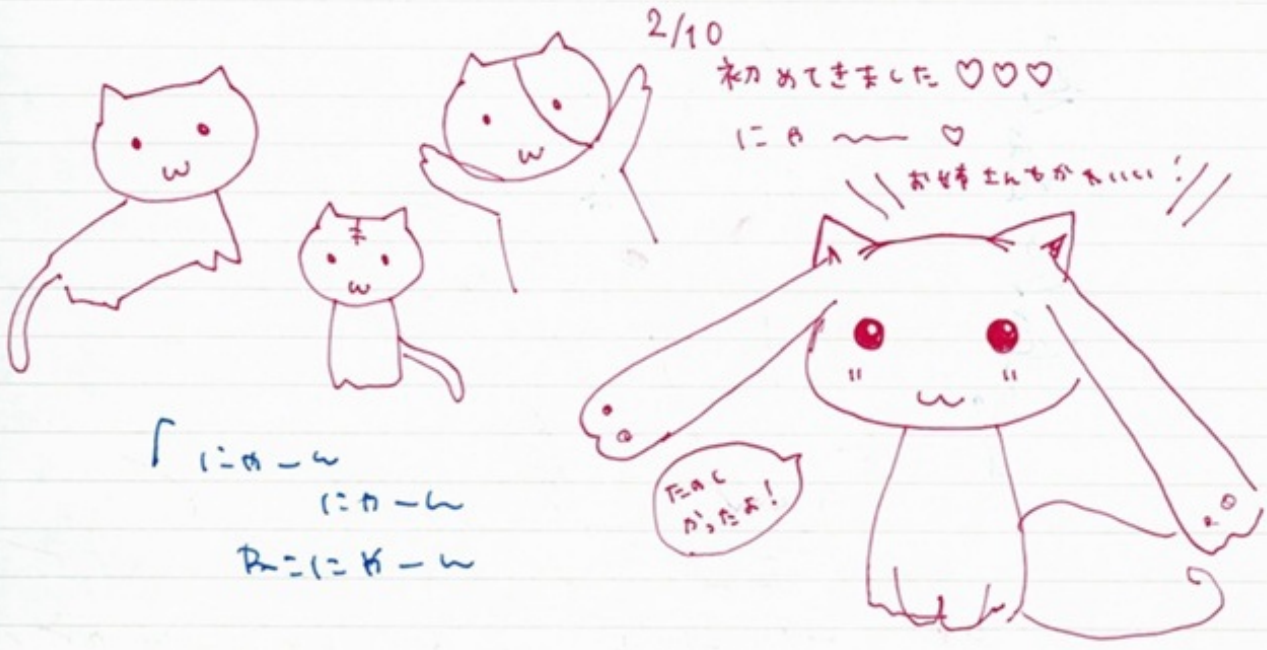 2/10
初めてきました♡♡♡
にゃ〜〜 ♡
お姉さんもかわいい!
たのし
かったよ!
「にゃーん
にゃーん
にゃーん